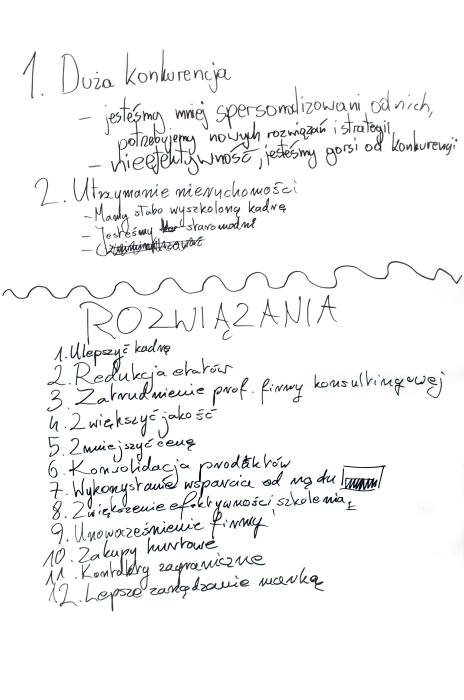 1. Duża konkurencja
- jesteśmy mniej spersonalizowani od nich,
potrzebujemy nowych rozwiązań i strategii
- nieefektywność, jesteśmy gorsi od konkurencji
2. Utrzymanie nieruchomości
- Mamy słabo wyszkoloną kadrę
- Jesteśmy staromodni
-
ROZWIĄZANIA
1. Ulepszyć kadrę
2. Redukcja etatów
3. Zatrudnienie prof. firmy konsultingowej
4. Zwiększyć jakość
5. Zmniejszyć cenę
6. Konsolidacja produktów
7. Wykorzystanie wsparcia od rządu
8. Zwiększenie efektywności, szkolenia
9. Unowocześnienie firmy
10. Zakupy hurtowe
11. Kontrakty zagraniczne
12. Lepsze zarządzanie marką